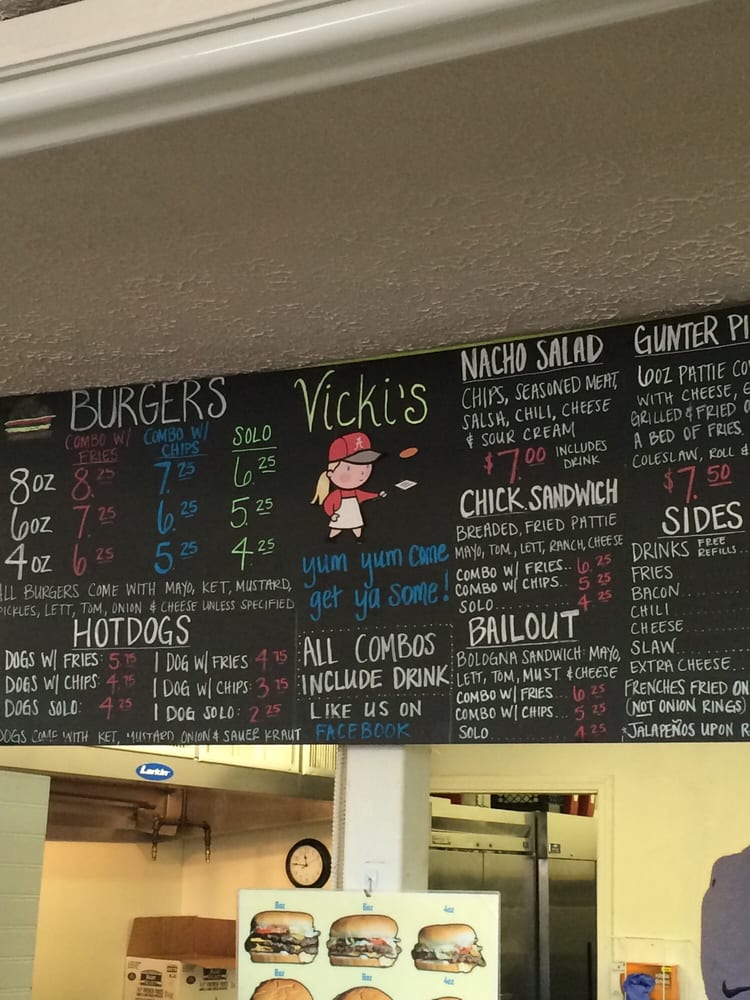 BURGERS
COMBO W/ FRIES COMBO W/ CHIPS SOLO
8oz 8.25 7.25 6.25
6oz 7.25 6.25 5.25
4oz 6.25 5.25 4.25
ALL BURGERS COME WITH MAYO, KET, MUSTARD,
PICKLES, LETT, TOM, ONION & CHEESE UNLESS SPECIFIED
HOTDOGS
DOGS W/ FRIES: 5.75 1 DOG W/ FRIES 4.75
DOGS W/ CHIPS: 4.75 1 DOG W/ CHIPS: 3.75
DOGS SOLO: 4.25 1 DOG SOLO: 2.25
DOGS COME WITH KET, MUSTARD, ONION & SAUER KRAUT
Vicki's
A
yum yum come
get ya some!
ALL COMBOS
INCLUDE DRINK
LIKE US ON
FACEBOOK
NACHO SALAD
CHIPS, SEASONED MEAT,
SALSA, CHILI, CHEESE
& SOUR CREAM
$7.00 INCLUDES DRINK
CHICK. SANDWICH
BREADED, FRIED PATTIE
MAYO, TOM, LETT, RANCH, CHEESE
COMBO W/ FRIES.. 6.25
COMBO W/ CHIPS... 5.25
SOLO 4.25
BAILOUT
BOLOGNA SANDWICH: MAYO,
LETT, TOM, MUST & CHEESE
COMBO W/ FRIES... 6.25
COMBO W/ CHIPS... 5.25
SOLO 4.25
GUNTER PI
6oz PATTIE CO
WITH CHEESE, G
GRILLED & FRIED O
A BED OF FRIES
COLESLAW, ROLL &
$7.50
SIDES
DRINKS FREE REFILLS..
FRIES
BACON
CHILI
CHEESE
SLAW
EXTRA CHEESE...
FRENCHES FRIED ON
(NOT ONION RINGS)
*JALAPEÑOS UPON R
Larkin
8oz 6oz 4oz
8oz 6oz 4oz